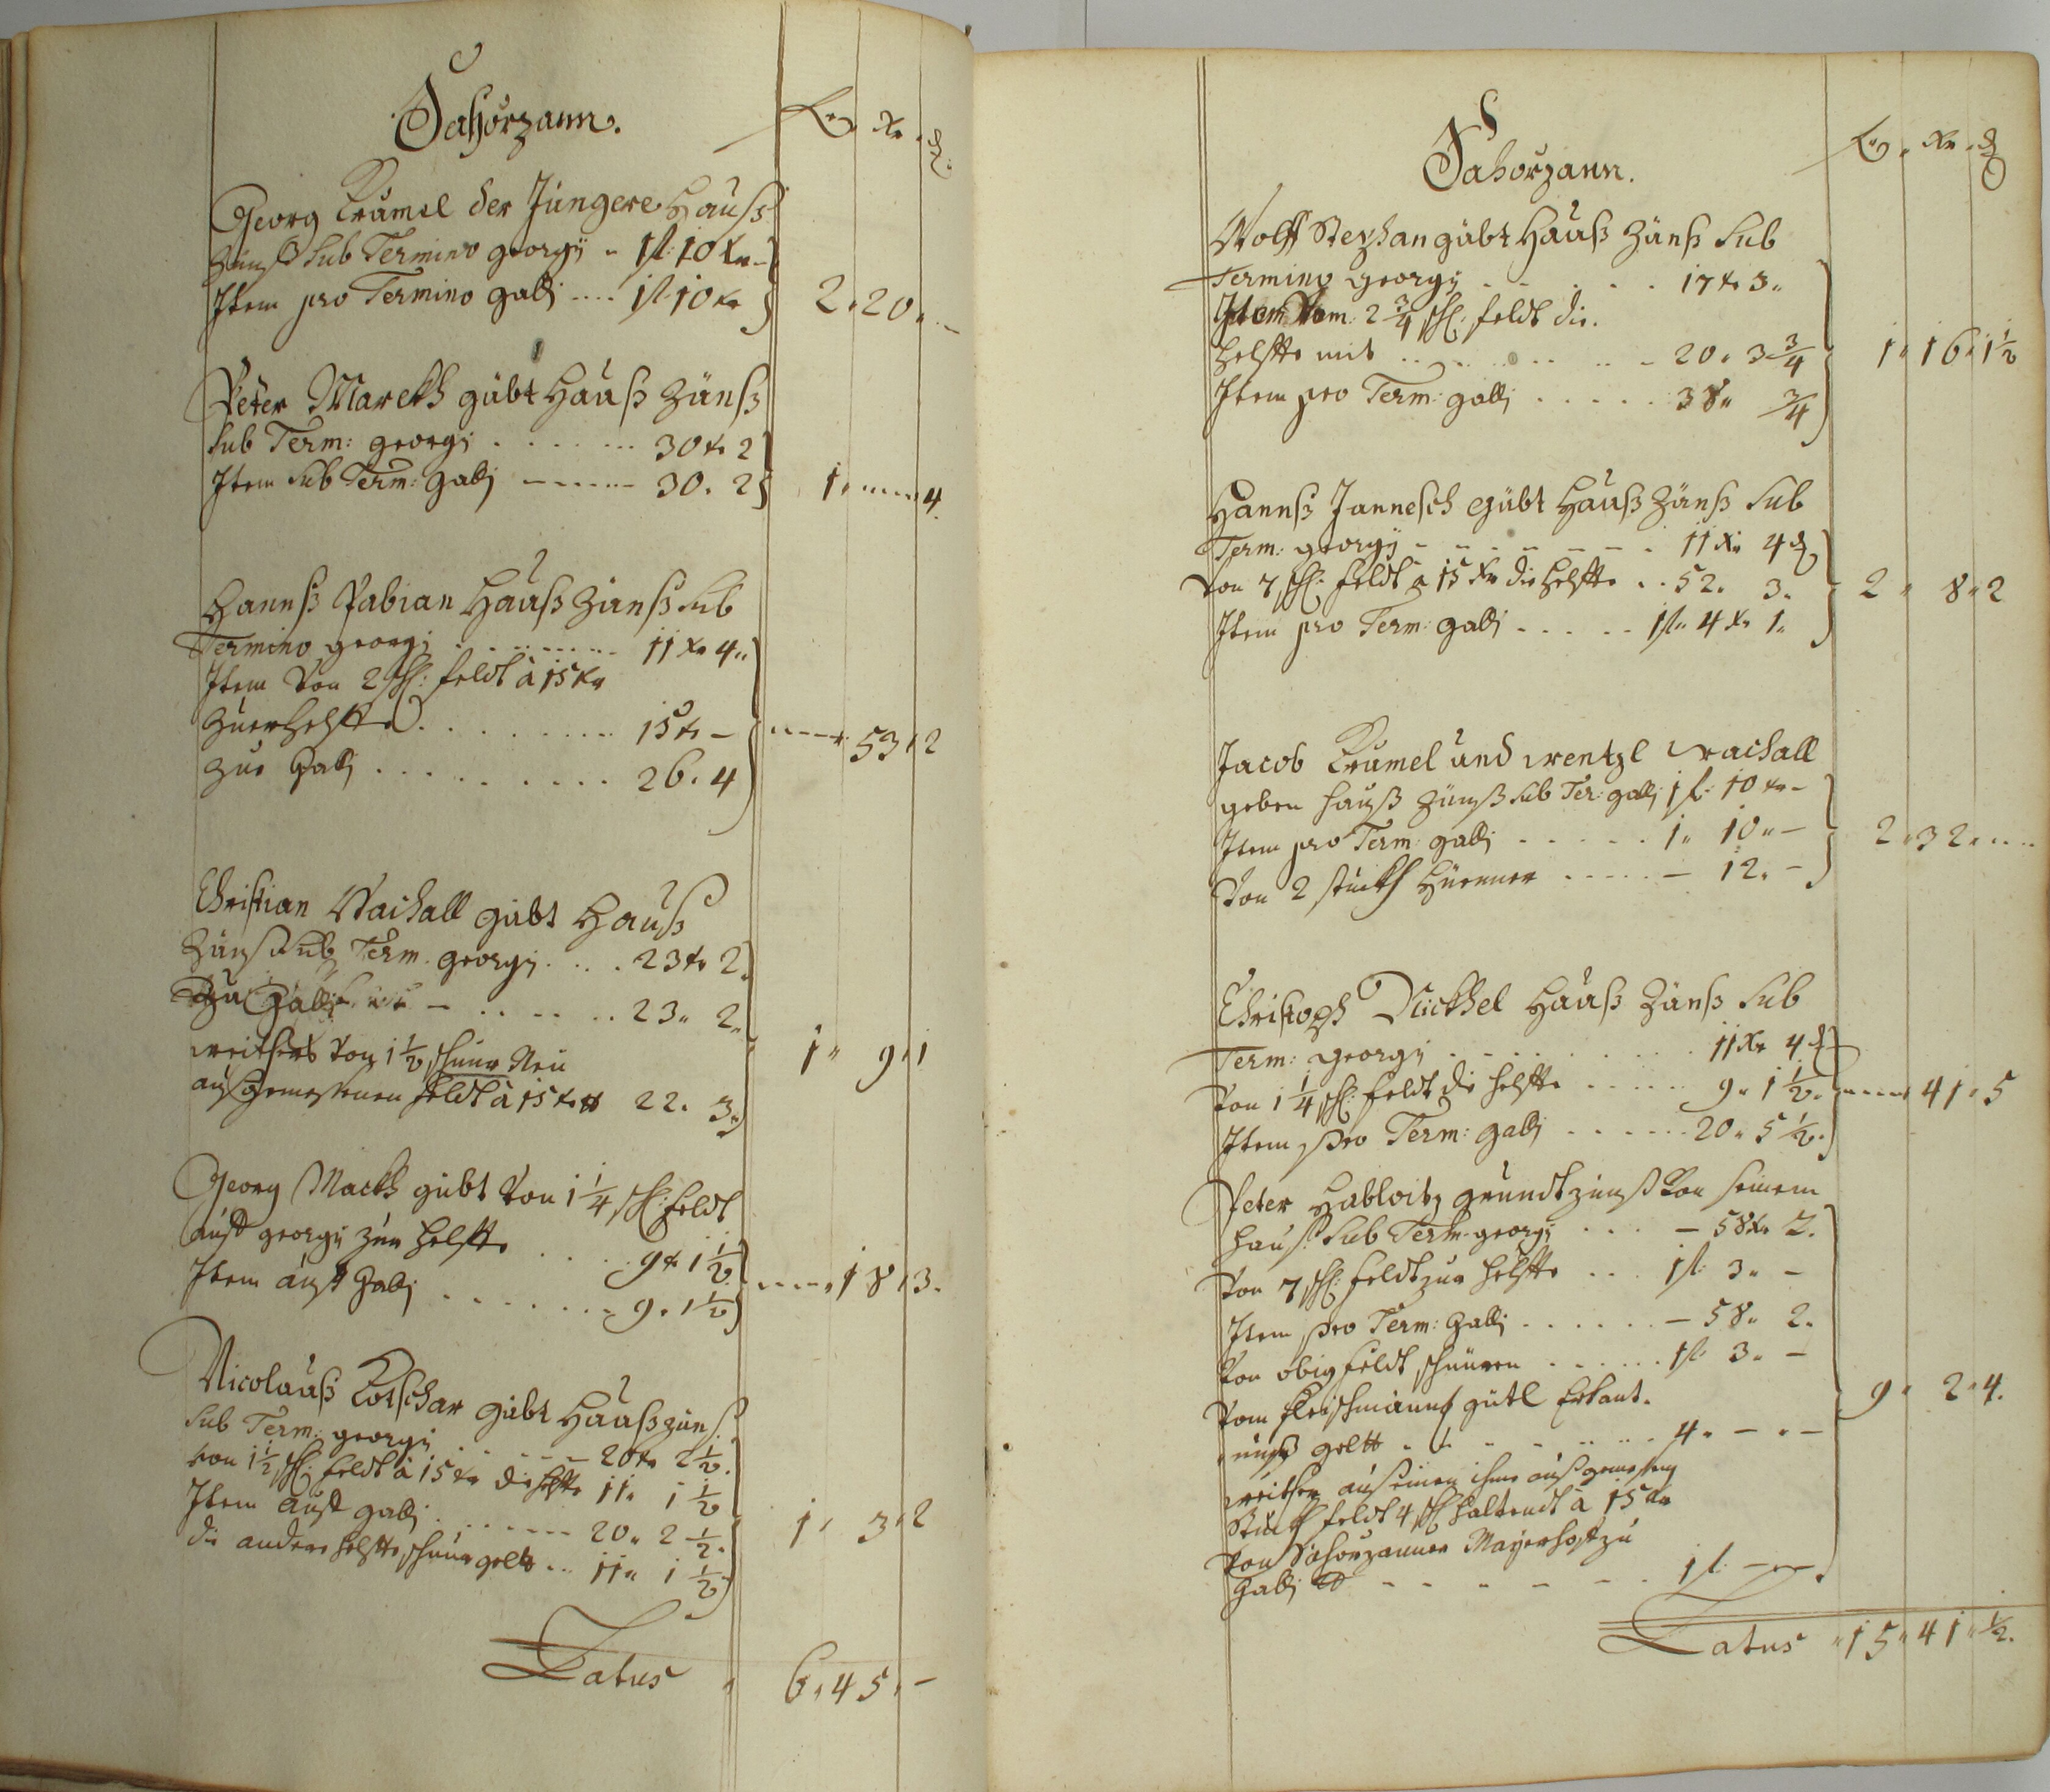 Sahorzann.
fl. Xr. ₰.
Georg Krumel der Jüngere Hauß
Zünß Sub Termino georgy 1 fl: 10 Xr -
Item pro Termino galli .... 1 fl 10 Xr
2 " 20 " -
Peter Marckh gübt Hauß Zünß
Sub Term: georgi . . . . . . 30 Xr 2
Item Sub Term: Galli ------ 30. 2
1 " ---- 4.
Hannß Fabian Hauß Zünß Sub
Termino georgi . . . . . . . . 11 Xr 4 "
Item Von 2 sch: feldt à 15 Xr
Zuer helffte . . . . . . . . . 15 Xr -
Zue Galli . . . . . . . . . 26. 4
---- 53 " 2
Christian Wachall gübt Hauß
Zünß Sub Term. georgy . . . 23 Xr 2.
Zu Galli - . . . . . 23 " 2 "
weithers Von 1 1/2 schnur Neu
außgemessenen feldt à 15 Xr 22. 3 "
1 " 9 " 1
Georg Mackh gübt Von 1 1/4 sch: feldt
auff georgy zur helffte . . . . 9 Xr 1 1/2
Item auff Galli . . . . . . . 9. 1 1/2
---- 18 " 3.
Nicolauß Kotschar gübt Hauß zünß
Sub Term: georgy . . . . . . - 20 Xr 2 1/2.
von 1 1/2 sch: feldt à 15 Xr die helffte 11 " 1 1/2
Item auff galli . . . . . . --- 20 " 2 1/2.
die andere helffte schnur geldt ... 11 " 1 1/2
1 " 3 " 2
Latus " 6 " 45 " -
Sahorzann.
fl. " Xr. ₰
Wolff Stephan gübt Hauß Zünß Sub
Termino georgy . . . . . . 17 Xr 3 "
Item Vom: 2 3/4 sch: feldt die.
helffte mit . . . . . . . . - 20 " 3 3/4
Item pro Term: galli . . . . . 38 " 3/4
1 " 16 " 1 1/2
Hannß Jannesch gübt Hauß Zünß Sub
Term: georgy - - - - - - . 11 Xr 4 ₰
Von 7 sch: feldt à 15 Xr die helffte . . 52. 3.
Item pro Term: galli - . . . - 1 fl " 4 Xr 1 "
2 " 8 " 2
Jacob Krumel und wentzl wachall
geben hauß Zünß Sub Ter: galli 1 fl: 10 Xr -
Item pro Term: galli . . . . . 1 " 10 " -
Von 2 stuckh Hüenner . . . . . - 12. -
2 " 32 " ....
Christoph Nickhel Hauß Zünß Sub
Term: georgy . . . . . . . . 11 Xr 4 ₰
Von 1 1/4 sch: feldt die helffte . . . . . 9 " 1 1/2.
Item pro Term: galli . . . . . . 20 " 5 1/2.
---- 41 " 5
Peter Habloitz grundt zünß Von seinem
hauß Sub Term. georgy . . . - 58 Xr 2.
Von 7 sch: feldt zur helffte . . . 1 fl: 3 " -
Item pro Term: Galli . . . . . . - 58 " 2.
Von obig feldt schnüren . . . . . . 1 fl: 3 " -
Vom fleischmannß gütl Erkant.
nuß geldt . . . . . . . . . 4 " - " -
weither auf einen ihme außgemessen
Stuckh feldt 4 sch: haltendt à 15 Xr
Von Sahorzanner Mayerhoff zu
Galli - - - - - . 1 fl: - -
9 " 2 " 4.
Latus " 15 " 41 " 1/2.